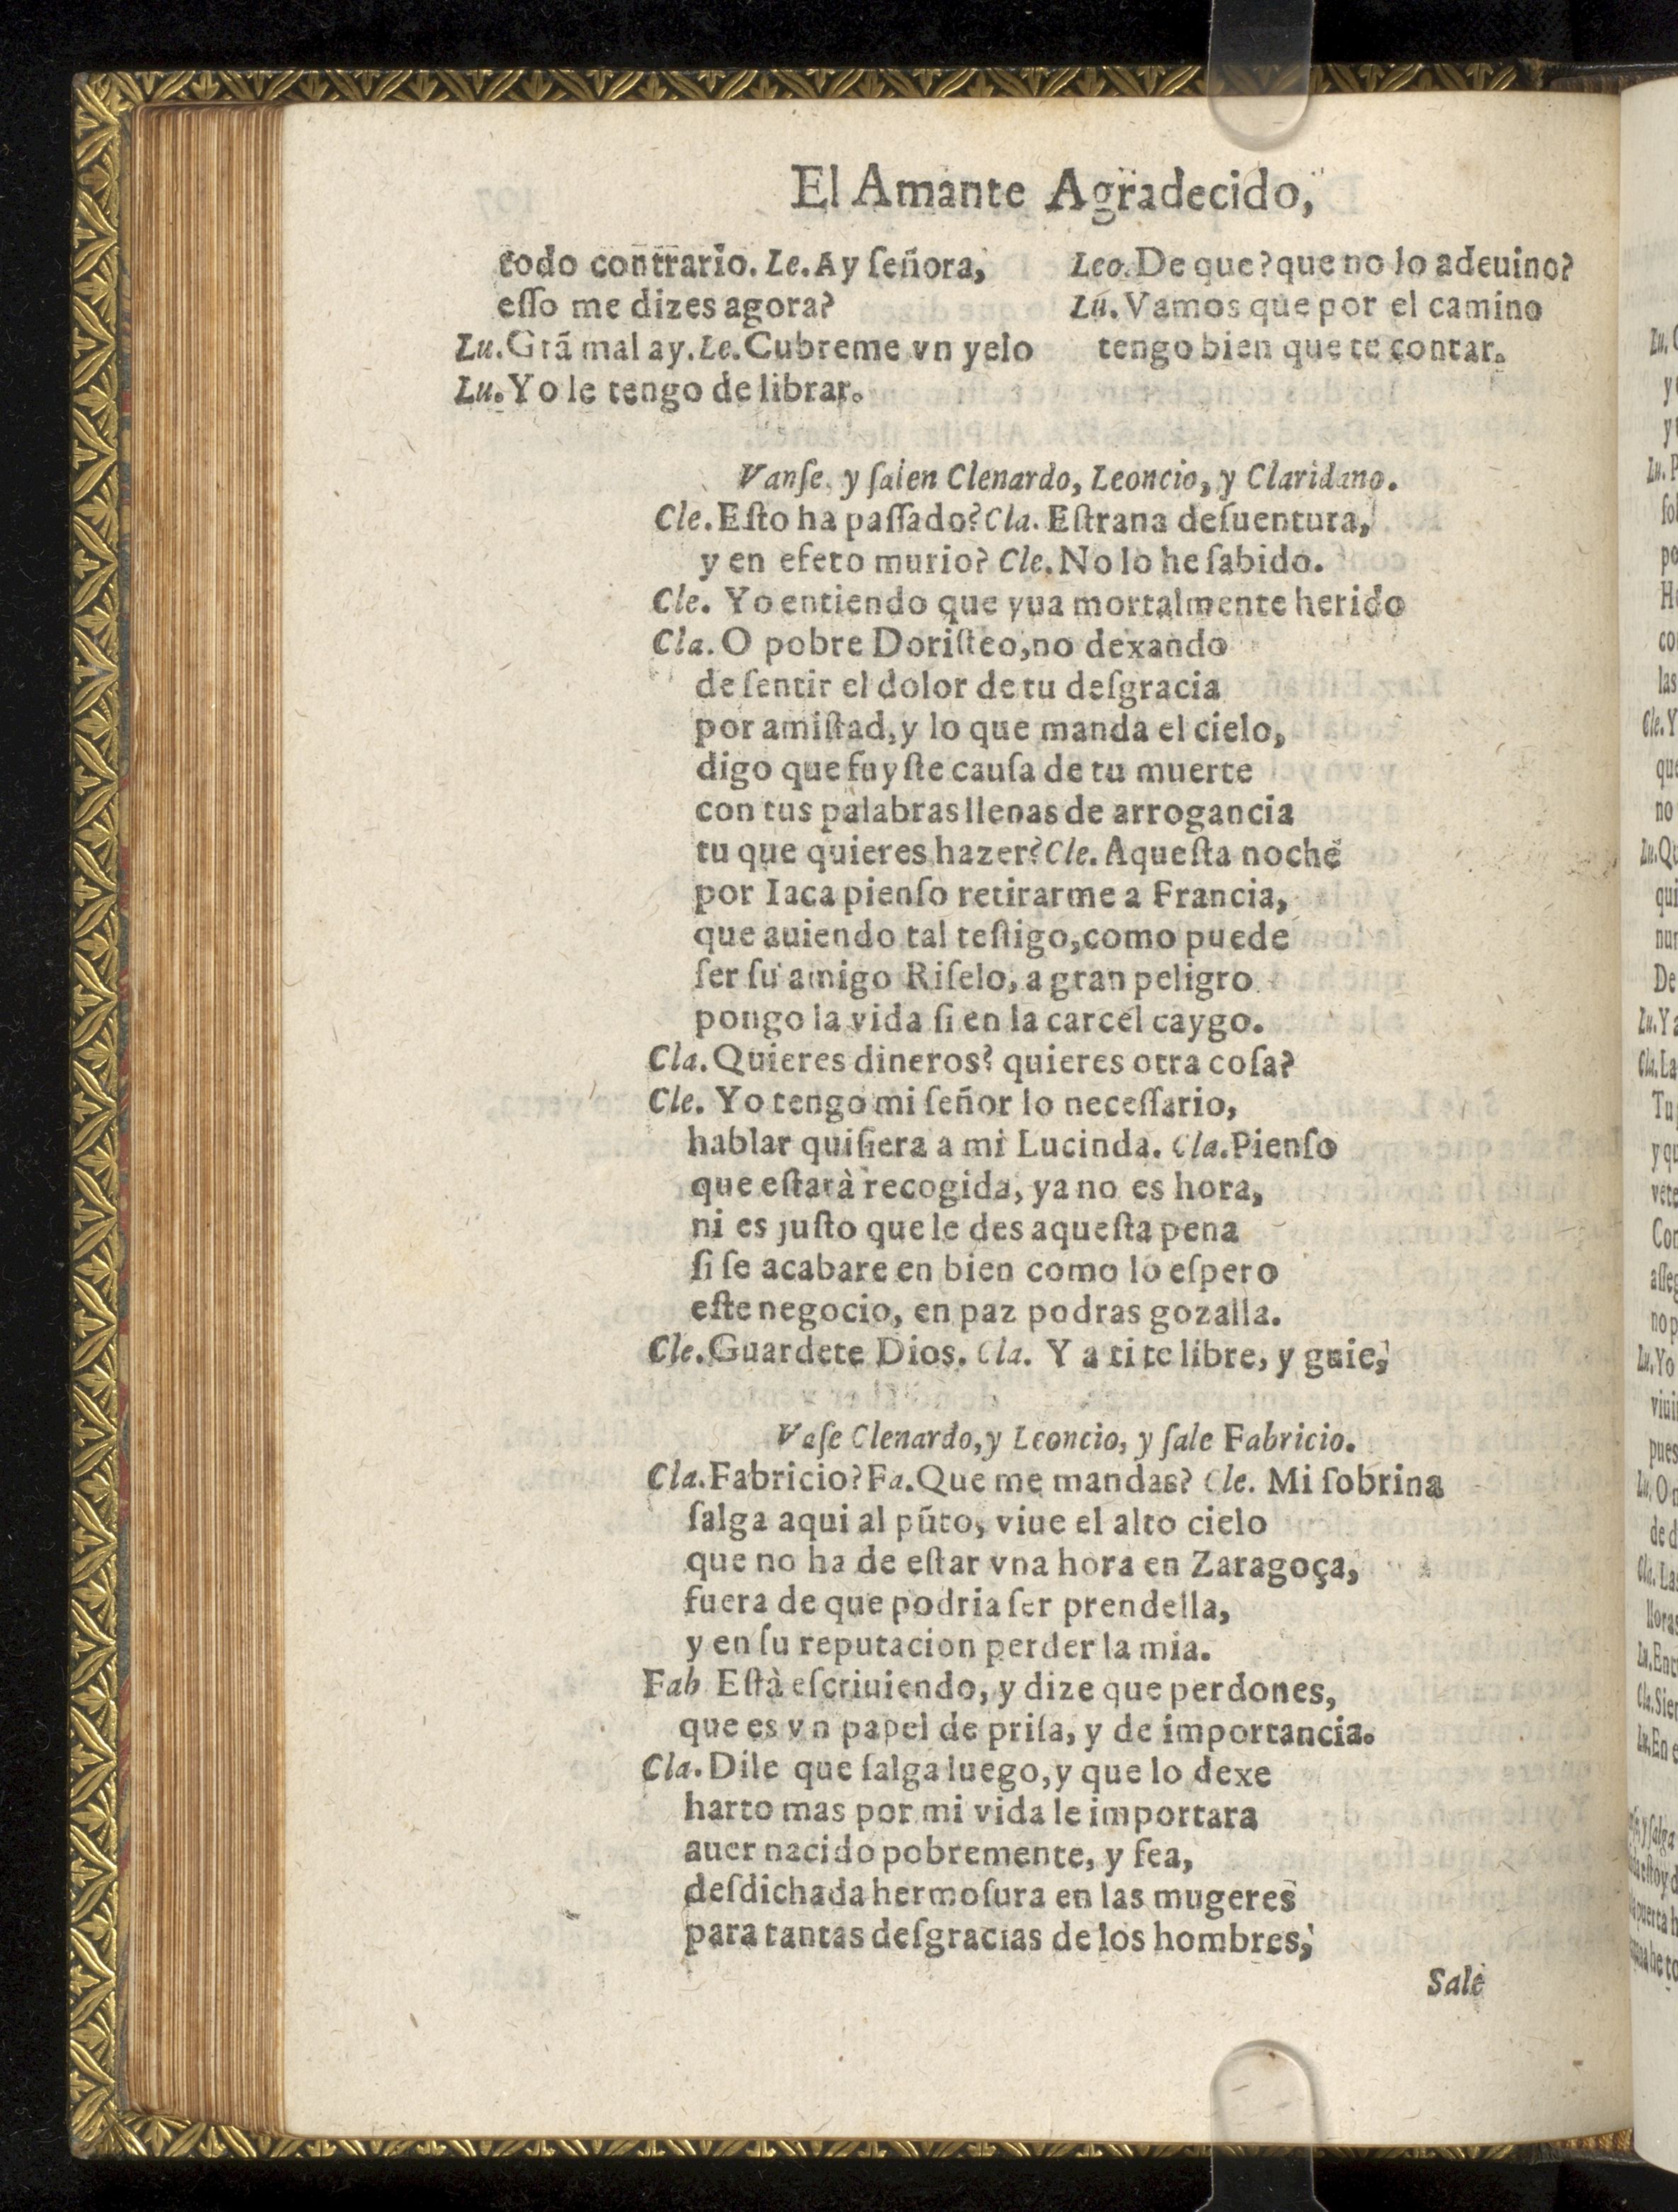 El Amante Agradecido,
todo contrario. Le. Ay ſeñora,
eſſo me dizes agora?
Lu. Grã mal ay. Le. Cubreme vn yelo
Lu. Yo le tengo de librar.
Leo. De que? que no lo adeuino?
Lu. Vamos que por el camino
tengo bien que te contar.
Vanſe, y ſalen Clenardo, Leoncio, y Claridano.
Cle. Eſto ha paſſado? Cla. Eſtrana deſuentura,
y en efeto murio? Cle. No lo he ſabido.
Cle. Yo entiendo que yua mortalmente herido
Cla. O pobre Doriſteo, no dexando
de ſentir el dolor de tu deſgracia
por amiſtad, y lo que manda el cielo,
digo que fuyſte cauſa de tu muerte
con tus palabras llenas de arrogancia
tu que quieres hazer? Cle. Aqueſta noche
por Iaca pienſo retirarme a Francia,
que auiendo tal teſtigo, como puede
ſer ſu amigo Riſelo, a gran peligro
pongo la vida ſi en la carcel caygo.
Cla. Quieres dineros? quieres otra coſa?
Cle. Yo tengo mi ſeñor lo neceſſario,
hablar quiſiera a mi Lucinda. Cla. Pienſo
que eſtarà recogida, ya no es hora,
ni es juſto que le des aqueſta pena
ſi ſe acabare en bien como lo eſpero
eſte negocio, en paz podras gozalla.
Cle. Guardete Dios. Cla. Y a ti te libre, y guie,
Vaſe Clenardo, y Leoncio, y ſale Fabricio.
Cla. Fabricio? Fa. Que me mandas? Cle. Mi ſobrina
ſalga aqui al pũto, viue el alto cielo
que no ha de eſtar vna hora en Zaragoça,
fuera de que podria ſer prendella,
y en ſu reputacion perder la mia.
Fab Eſtà eſcriuiendo, y dize que perdones,
que es vn papel de priſa, y de importancia.
Cla. Dile que ſalga luego, y que lo dexe
harto mas por mi vida le importara
auer nacido pobremente, y fea,
deſdichada hermoſura en las mugeres
para tantas deſgracias de los hombres,
Sale